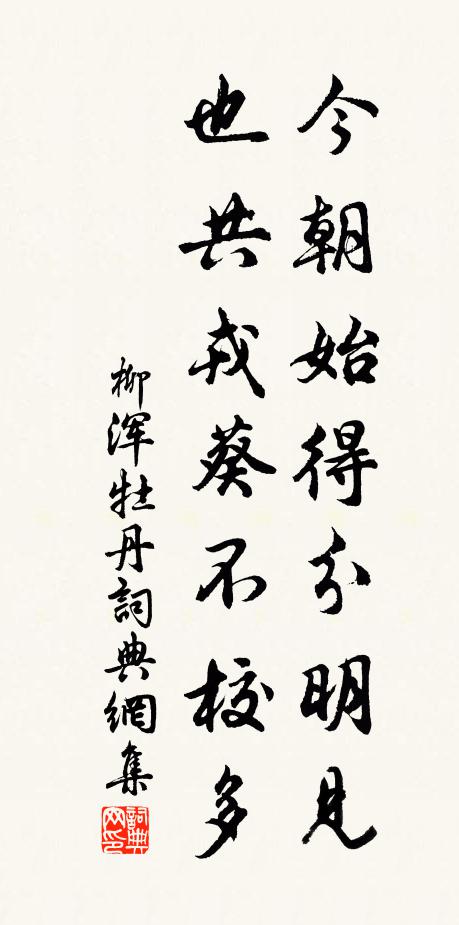 今朝始得分明見
也共戎葵不校多
柳渾牡丹詞典網集
詞典网印